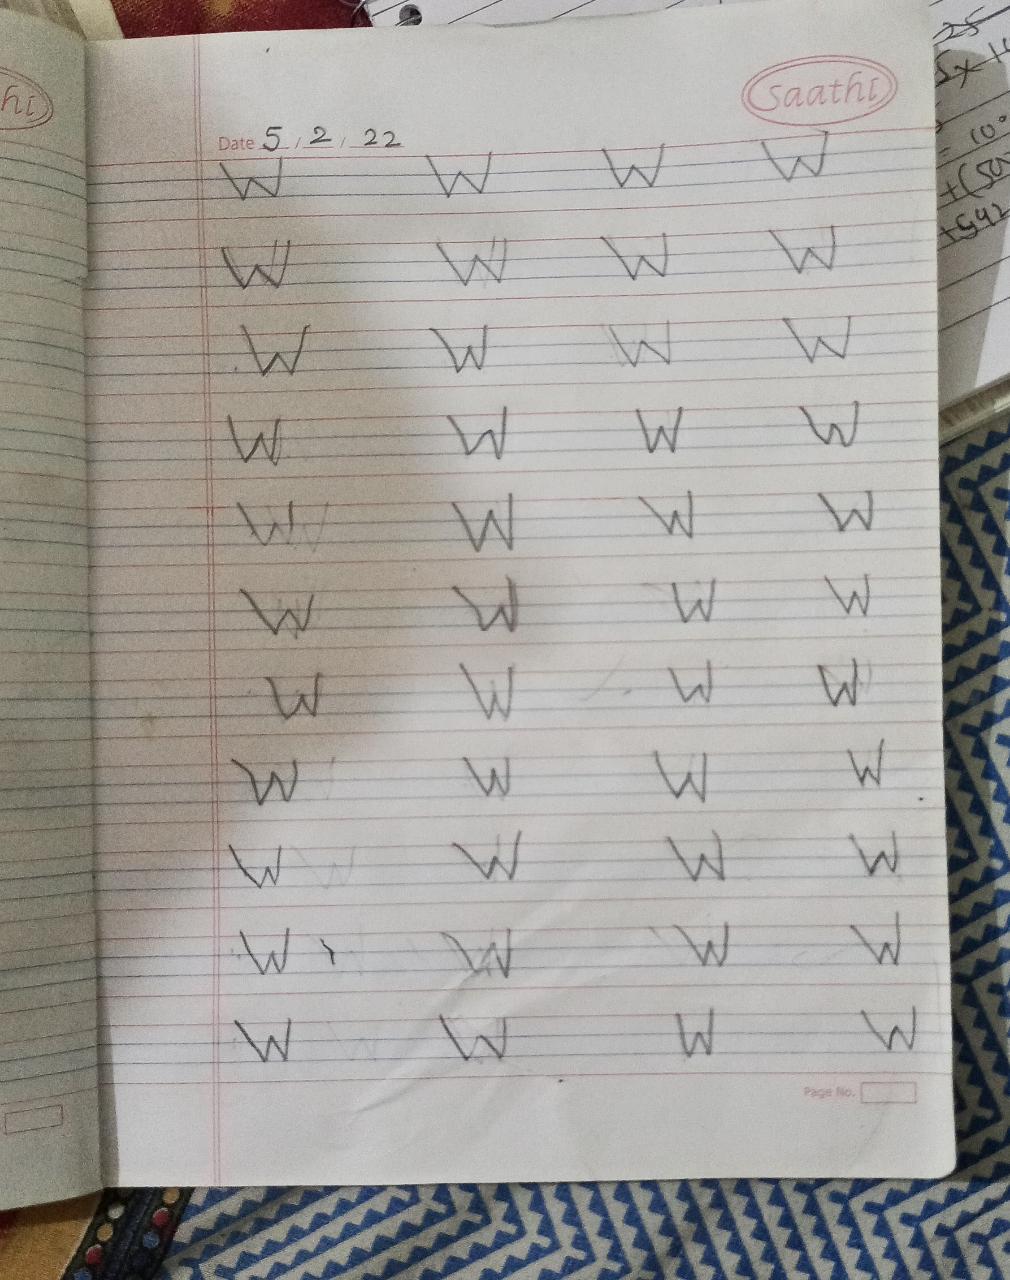 hi
Saathi
Date 5 / 2 / 22
W W W W
W W W W
W W W W
W W W W
W W W W
W W W W
W W W W
W W W W
W W W W
W W W W
W W W W
Page No.
25
5 x 1
= 10°
+(50
+542